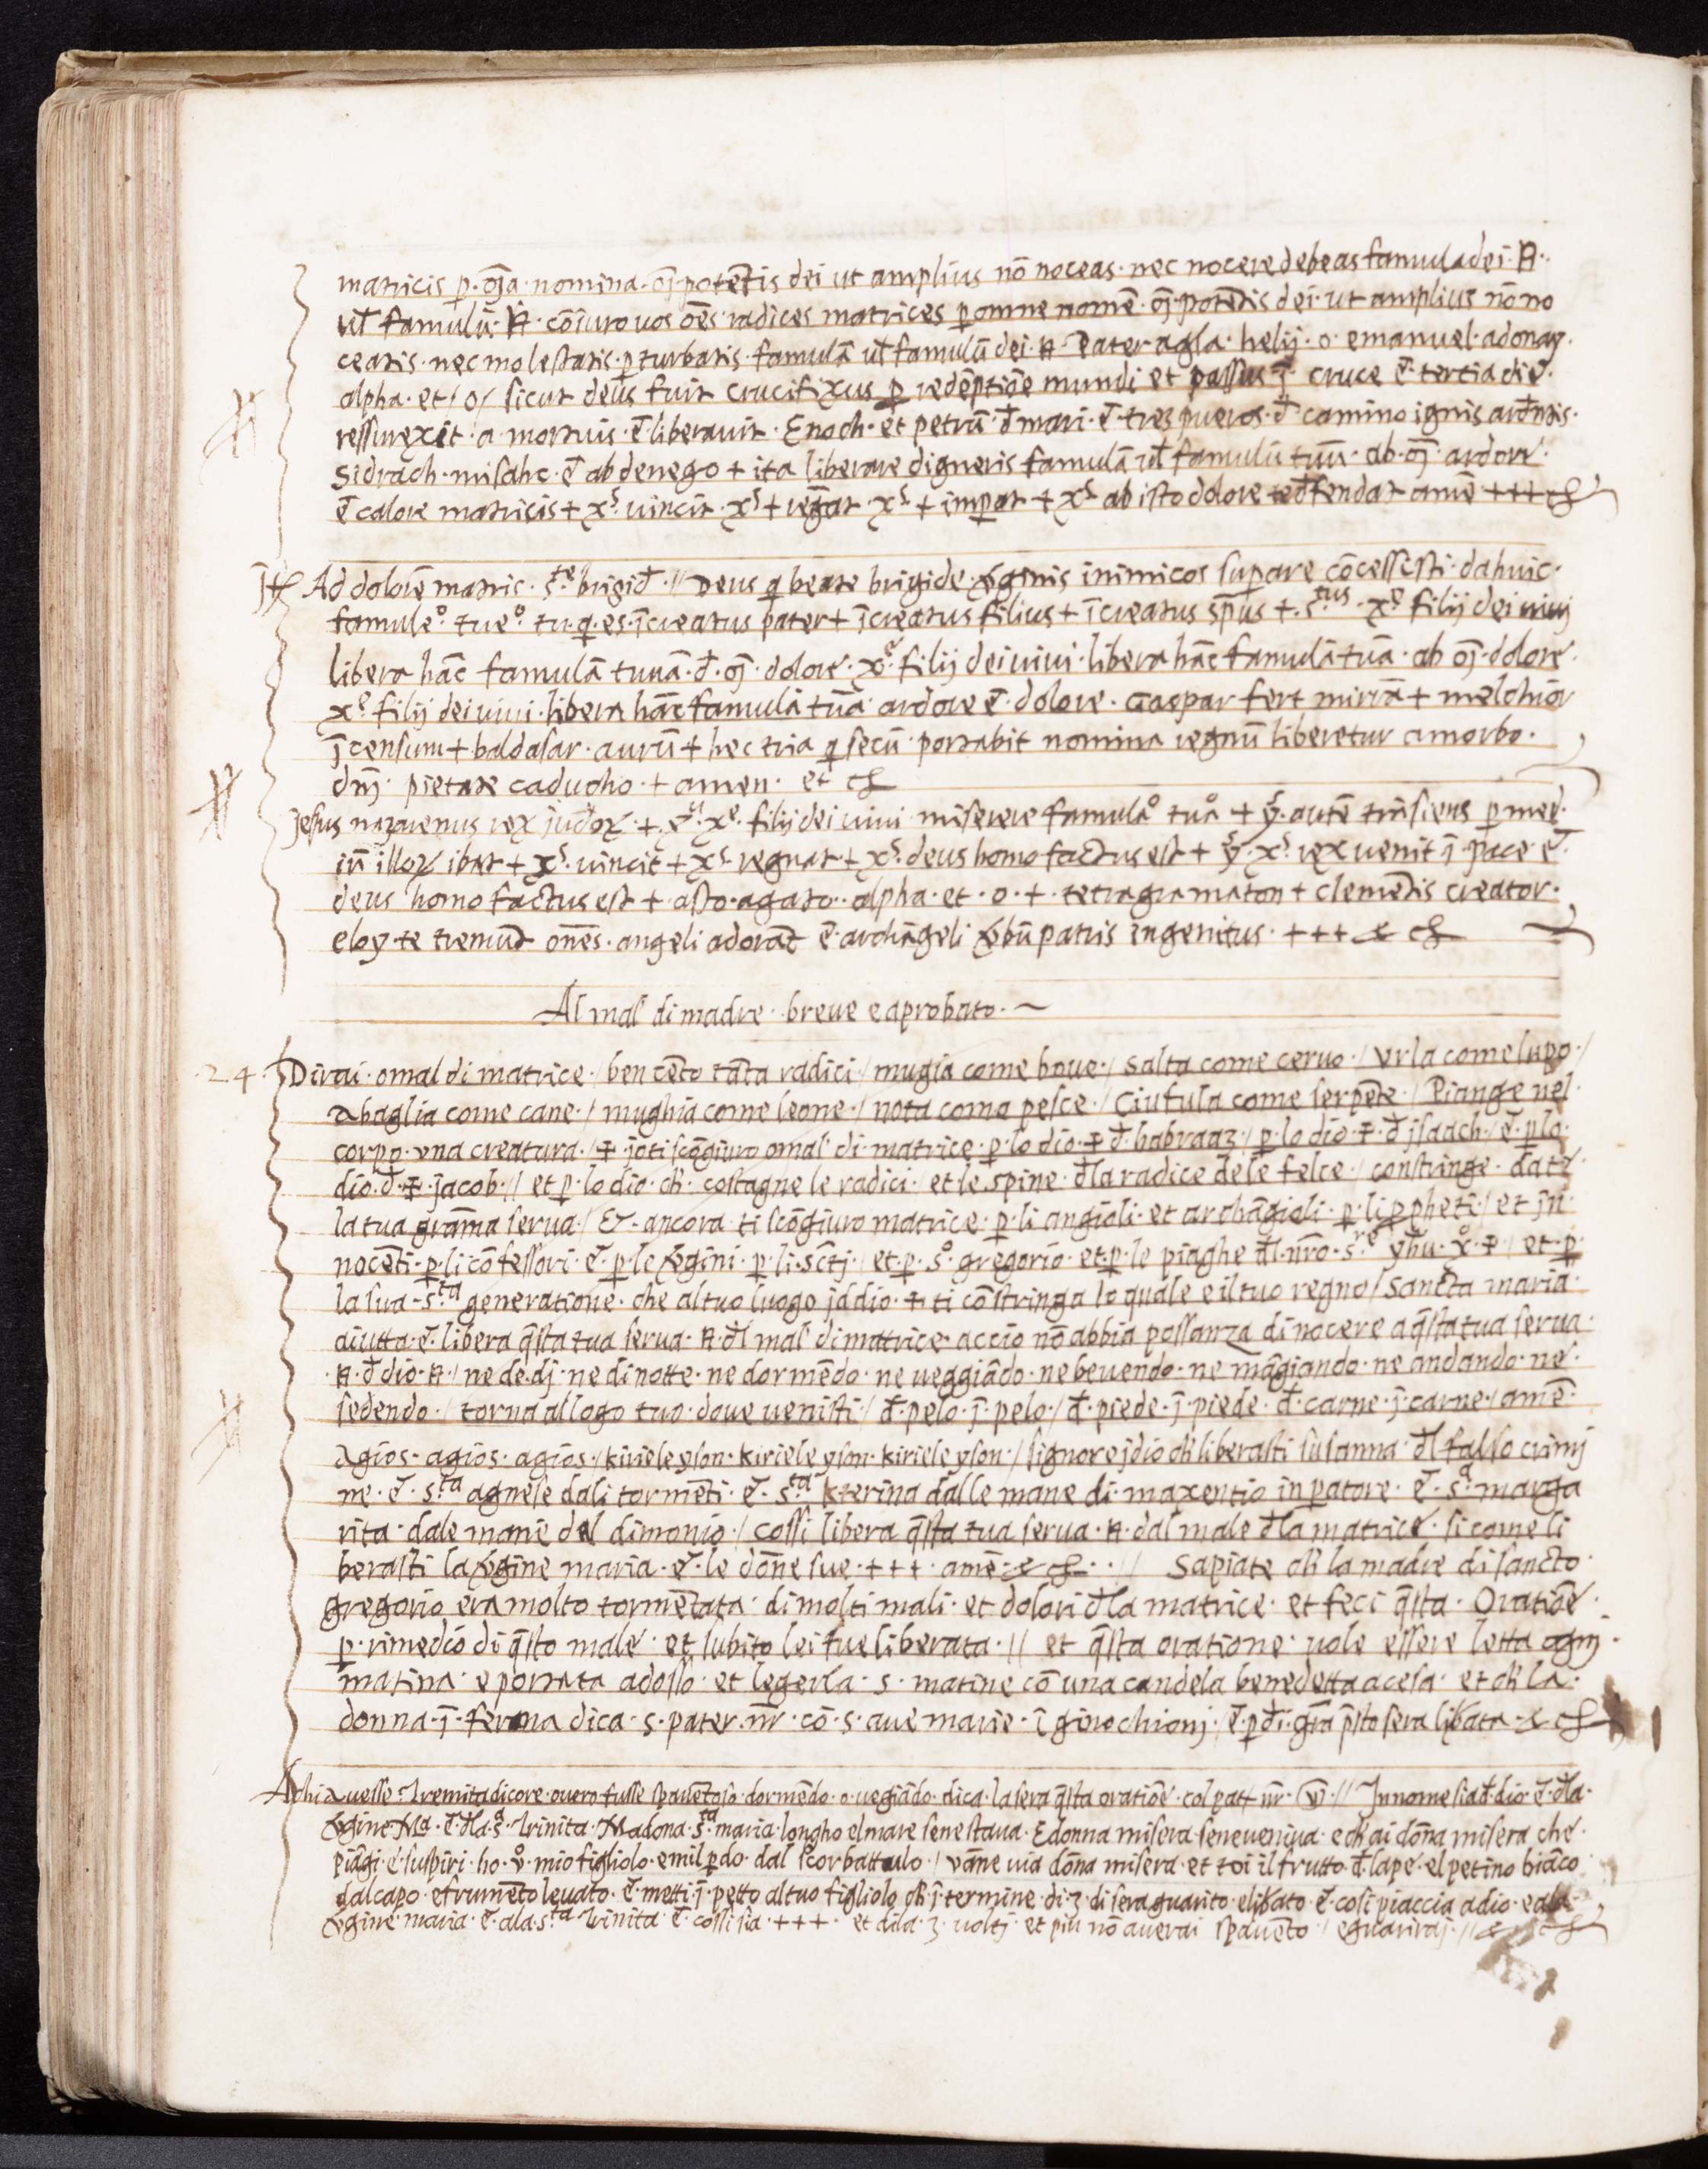 matricis p. oĵa · nomina · oĵ · potētis dei ut amplius nō noceas · nec nocere debeas famula dei · N ·
ul̄ famulū · N · cōiuro uos oēs radices matrices p omne nomē · oĵ · potētis dei · ut amplius nō no
ceatis · nec molestatis · pturbatis · famulā ul̄ famulū dei · N · Pater · agla · helij · o · emanuel · adonay ·
alpha · et / o / sicut deus fuit crucifixus p redēptiōe mundi et passus ī cruce ē tertia die ·
ressurexit · a mortuis · ē liberauit · Enoch · et petrū đ mari · ē tres pueros · đ camino ignis ardētis ·
Sidrach · misahc · ē abdenego + ita liberare digneris famulā ul̄ famulū tuū · ab · oĵ · ardore ·
ē calore matricis + xs · uincit · xs + regāt · xs + impat + xs ab isto dolore te đfendat amē + + +
Jt Ad dolorē matric · s.te brigiđ · // Deus q beate brigide · x̄ginis inimicos supare cōcessisti · da huic ·
famule · tue · tu · q · es · īcreatus pater + īcreatus filius + īcreatus spūs + · s.tus · xe filij dei uiui
libera hāc famulā tuuā · đ · oĵ · dolore · xe · filij dei uiui · libera hāc famulā tuā · ab oĵ · dolore ·
xe filij dei uiui · libera hāc famulā tuā ardore ē · dolore · Gaspar fert mirrā + melchior
īcensum + baldasar · aurū + hec tria q secū · portabit nomina regnū liberetur a morbo ·
dnĵ · pietate caducho · + amen · et
Jesus nazarenus rex judoꝝ · + xe · filij dei uiui miserere famula tua + autē trāsiens p med ·
iū illoꝝ ibat + xs · uincit + xs regnat + xs · deus homo factus est + xs · rex uenit ī pace ē
deus homo factus est + asto · agato · alpha · et · o · + · tetragramaton + clemētis creator ·
eloy · te tremūt onēs · angeli adorāt ē archāgeli x̄bū patris ingenitus · + + +
Al mal di madre · breue e aprobato · ~
24 · Dirai · o mal di matrice · / ben cēto tāta radici / mugia come boue · / salta come ceruo · / vrla come lupo · /
abaglia come cane · / mughia come leone · / nota como pesce · / Ciufula come serpēte · / Piange nel
corpo · vna creatura · / + jo ti scōgiuro o mal di matrice · p · lo dio · + đ · habraaz · / p · lo dio · + · đ jsaach · / ē · p lo
dio · đ · + · jacob · // et p · lo dio · ch · costagne le radici · et le spine đla radice dele felce · / constringe · da te
la tua grāma serua · / Et · ancora ti scōgiuro matrice · p · li angioli · et archāgioli · p · li ppheti · / et jn
nocēti · p · li cōfessori · ē · p le x̄gini · p · li · scti · et · p · so gregorio · et · p · le piaghe đl nro · sre yhu · x · + · / et · p
la sua · sta generatione · che al tuo luogo jddio · + · ti cōstringa lo quale e il tuo regno / sancta maria ·
aiutta · ē · libera q̄sta tua serua · N · đl mal di matrice · accio nō abbia possanza di nocere a q̄sta tua serua ·
· N · đ dio · N · / ne de dj · ne di notte · ne dormēdo · ne ueggiādo · ne beuendo · ne māgiando · ne andando · ne ·
sedendo · / torna al logo tuo · doue uenisti / đ · pelo · ī pelo · / đ · piede · ī piede · đ · carne · ī carne · / amē ·
Agios · agios · agios · / kirieleyson · kirieleyson · kirieleyson · / signore jdio ch liberasti susanna · đl falso crimj
ne · ē · sta agnese dali tormēti · ē · sta kterina dalle mane di · maxentio inpatore · ē · sa marga
rita · dale mane del dimonio · / cossi libera q̄sta tua serua · N · dal male đla matrice · si come li
berasti la x̄gine maria · ē · le dōne sue · + + + · amē · // Sapiate ch la madre di sancto ·
gregorio era molto tormētata · di molti mali · et dolori đla matrice · et feci q̄sta · Oratiōe ·
p · rimedio di q̄sto male · et subito lei fue liberata · // et q̄sta oratione · uole essere letta ognj ·
matina · e portata adosso · et legerla · s · matine cō una candela benedetta acesa · et ch la ·
donna · ī · ferma dica · s · pater · nr · cō · s · aue marie · ī ginochionj · / ē · p di · gra p̄sto sera libata ·
A chi auesse · tremita di core · ouero fusse spauētoso · dormēdo · o uegiādo · dica · la sera q̄sta oratiōe · col patr nr · // Jn nome sia đ dio ē · đla ·
x̄gine Ma · ē · đla sa trinita · Madona · sta maria · longho el mare se ne staua · E donna misera se ne ueniua · e ch ai dōna misera che ·
piāgi · e suspiri · ho · mio figliolo · e mil pdo · dal scorbattulo · / vāne uia dōna misera · et toi il frutto đ lape · el petino biāco
dal capo · e frumēto leuato · ē · metti ī petto al tuo figliolo ch ī termine · di · 3 · di sera guarito · e libato ē · cosi piaccia a dio · e ala
x̄gine maria · ē · ala sta trinita ē · cossi sia · + + + · et dila 3 · uoltj · et piu nō auerai spauēto · / e guarirai · //